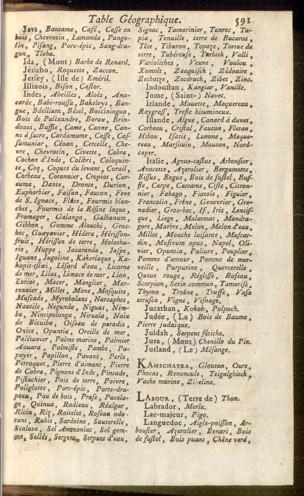 Table Géographique. 591
Java, Bantame, Café, Casse en
bois, Chevrotin, Lamanda, Pango-
lin, Pisang, Porc-épic, Sang-dra-
gon,
Ida, (Mont) Barbe de Renard.
Jericho, Roquette, Zaccon.
Jersey, (Isle de) Eméril.
Illinois, Bison, Castor.
Indes, Abeilles, Aloès, Ana-
carde, Babi-roussa, Bakeleys, Ban-
que, Bdellium, Bétel, Bolciningua,
Bois de Palixandre, Borax, Brin-
doxes, Buffle, Came, Canne, Can-
ne à sucre, Cardamome, Casse, Cas-
sumuniar, Céans, Cercelle, Che-
vre, Chevrotin, Civette, Cobra,
Cochon d'Inde, Colibri, Coloquin-
te, Coq, Coques du levant, Corail,
Cerbeau, Cotonnier, Cropiot, Cur-
cuma, Dante, Dronte, Durion,
Euphorbier, Faisan, Faucon, Feve
de S. Ignace, Fikre, Fourmis blan-
ches, Fourmis de la Résine laque,
Fromager, Galanga, Galbanum,
Gibbon, Gomme Alouchi, Gros-
bec, Guepavier, Hédera, Hérisson-
fruit, Hérisson de terre, Holothu-
rie, Huppe, Jacaranda, Jaspe,
Iguane, Jugoline, Kakerlaque, Ka-
Lézard d'eau, Licorne
de mer, Lilas, Limace de mer, Lion,
Loriot, Macer, Manglier, Mar-
ronnier, Millet, Mone, Mosquite,
Muscade, Myrobolans, Narcaphte,
Nautile, Negundo, Niguas, Nim-
bo, Nintipolongo, Nirualle, Noix
de Bicuiba, Oiseau de paradis,
Onice, Opuntia, Oreille de mer,
Palétuvier, Palme marine, Palmier
Palmiste, Pambe, Pa-
payer, Papillon, Pavane, Perle,
Perroquet, Pierre d'aimant, Pierre
de Cobra, Pignons d'Inde, Pintade,
Pistachier, Pois de terre, Poivre,
Porc-épic, Porte-dra-
peau, Pou de bois, Prase, Pucela-
ge, Quinua, Radieux, Réalgar,
Ricin, Riz, Roitelet, Roseau odo-
rant, Rubis, Sardoine, Sauterelle,
Sel Ammoniac, Sel gem-
me, Serpens, Serpens d'eau,
Signoc, Tamarinier, Tautre, Ta-
pie, Tenaille, terre de Bucaros,
Tête, Tiburon, Topaze, Tortue de
terre, Tubéreuse, Turbith, Valli,
Variolithes, Veuve, Voulou,
Xomolt, Zaaguisch, Zédoaire,
Zechotze, Zecdrach, Zibet, Zinc.
Indoustan, Kangiar, Vanille.
Jone, (Saint-) Nawr.
Irlande, Mouette, Maquereau,
Reygrass, Trefle bitumineux.
Islande, Algue, Canard à duvet,
Corbeau, Cristal, Faucon, Fletan,
Hibou, Isatis, Lumme, Maque-
reau, Marsouin, Mouton, Nord-
ceper.
Italie, Agnus-castus, Arbousier,
Avocette, Azerolier, Bergamotte,
Bistus, Bogue, Bois de sustel, Buf-
fle, Carpe, Castame, Ciste, Citron-
nier, Fabago, Fiatole, Figuier,
Francolin, Frêne, Genevrier, Gre-
nadier, Gros-bec, If, Iris, Lentif-
que, Liege, Malarmat, Mandra-
gore, Marbre, Melon, Melon d'eau,
Millet, Mouche luisante, Musarai-
gne, Musivum opus, Napel, Oli-
vier, Opuntia, Paliure, Peuplier,
Pomme d'amour, Pomme de mer-
veille, Purpurine, Quercerelle,
Queue rouge, Réglisse, Roseau,
Scorpion, Serin commun, Tamarisc,
Thymo, Trobea, Truffe, Vasa
etrusca, Vigne, Visnage.
Jucathan, Kohob, Polpoch.
Judée, (La) Bois de Baume,
Pierre judaïque.
Juidah, Serpens fétiche.
Jura, (Mont) Chenille du Pin.
Jutland, (Le) Mésange.
KAMSCHATKA, Glouton, Ours,
Phocas, Renoncule, Tzigalghitck,
Vache marine, Zibeline.
LABOUR, (Terre de) Thon.
Labrador, Merlu.
Lac-majeur, Pigo.
Languedoc, Aigle-poisson, Ar-
bousier, Azerolier, Benari, Bois
de sustel, Bois puant, Chêne verd,